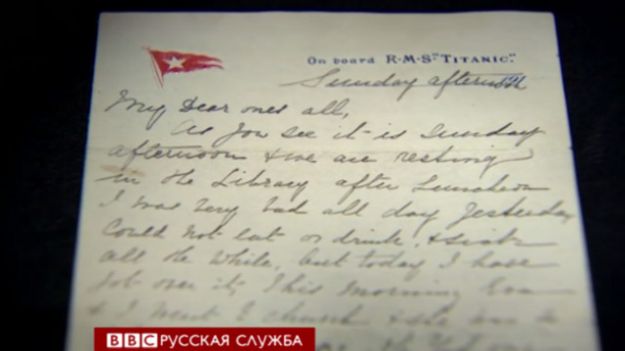 On board R·M·S "TITANIC."
Sunday afternoon
My Dear ones all,
As you see it is Sunday
afternoon & we are resting
in the Library after Luncheon
I was very bad all day Yesterday
Could not eat or drink, & sick
all the while, but today I have
got over it, This morning Eva
& I went to church & she was so
BBC РУССКАЯ СЛУЖБА